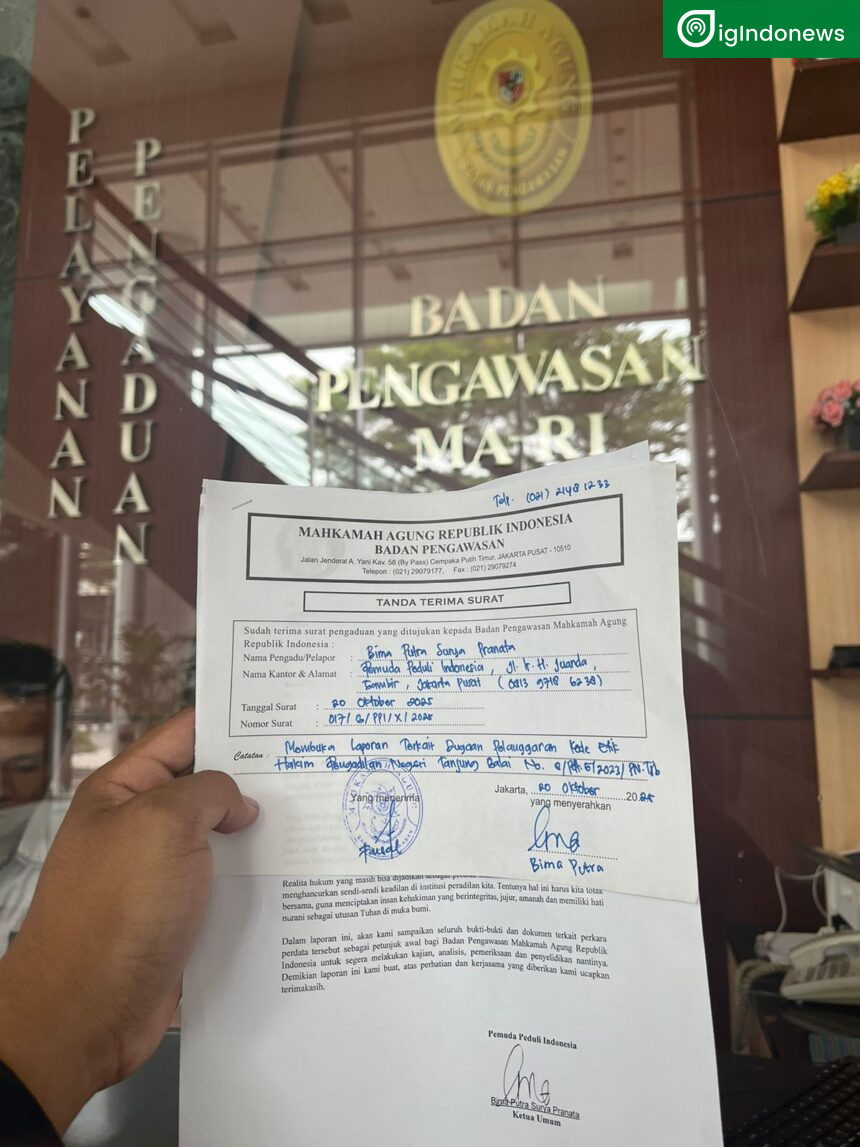 igIndonews
MAHKAMAH AGUNG
PELAYANAN
PENGADUAN
BADAN
PENGAWASAN
MA-RI
Telp. (021) 2148 1233
MAHKAMAH AGUNG REPUBLIK INDONESIA
BADAN PENGAWASAN
Jalan Jenderal A. Yani Kav. 58 (By Pass) Cempaka Putih Timur, JAKARTA PUSAT - 10510
Telepon : (021) 29079177, Fax : (021) 29079274
TANDA TERIMA SURAT
Sudah terima surat pengaduan yang ditujukan kepada Badan Pengawasan Mahkamah Agung
Republik Indonesia :
Nama Pengadu/Pelapor : Bima Putra Surya Pranata
Nama Kantor & Alamat : Pemuda Peduli Indonesia, Jl. Ir. H. Juanda,
Gambir, Jakarta Pusat (0813 9718 6238)
Tanggal Surat : 20 Oktober 2025
Nomor Surat : 017/G/PPI/X/2025
Catatan : Membuka Laporan Terkait Dugaan Pelanggaran Kode Etik
Hakim Pengadilan Negeri Tanjung Balai No. 2/Pdt.G/2023/PN.Tjb
Jakarta, 20 Oktober 2025
Yang menerima
yang menyerahkan
Bima Putra
Realita hukum yang masih bisa dijadikan sebagai
menghancurkan sendi-sendi keadilan di institusi peradilan kita. Tentunya hal ini harus kita tolak
bersama, guna menciptakan insan kehakiman yang berintegritas, jujur, amanah dan memiliki hati
nurani sebagai utusan Tuhan di muka bumi.
Dalam laporan ini, akan kami sampaikan seluruh bukti-bukti dan dokumen terkait perkara
perdata tersebut sebagai petunjuk awal bagi Badan Pengawasan Mahkamah Agung Republik
Indonesia untuk segera melakukan kajian, analisis, pemeriksaan dan penyelidikan nantinya.
Demikian laporan ini kami buat, atas perhatian dan kerjasama yang diberikan kami ucapkan
terimakasih.
Pemuda Peduli Indonesia
Bima Putra Surya Pranata
Ketua Umum